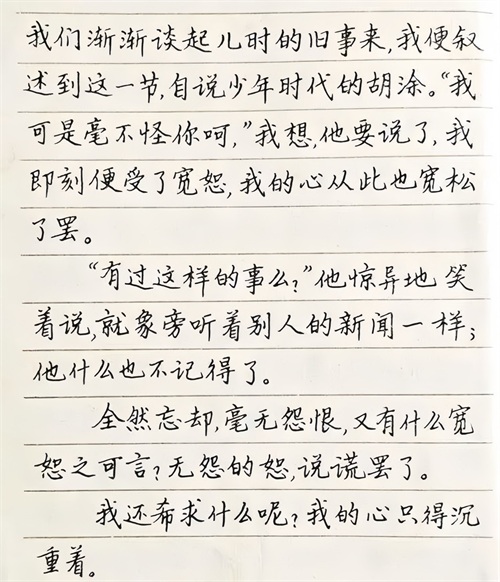 我们渐渐谈起儿时的旧事来,我便叙
述到这一节,自说少年时代的胡涂。“我
可是毫不怪你呵,”我想,他要说了,我
即刻便受了宽恕,我的心从此也宽松
了罢。
“有过这样的事么?”他惊异地笑
着说,就象旁听着别人的新闻一样;
他什么也不记得了。
全然忘却,毫无怨恨,又有什么宽
恕之可言?无怨的恕,说谎罢了。
我还希求什么呢?我的心只得沉
重着。